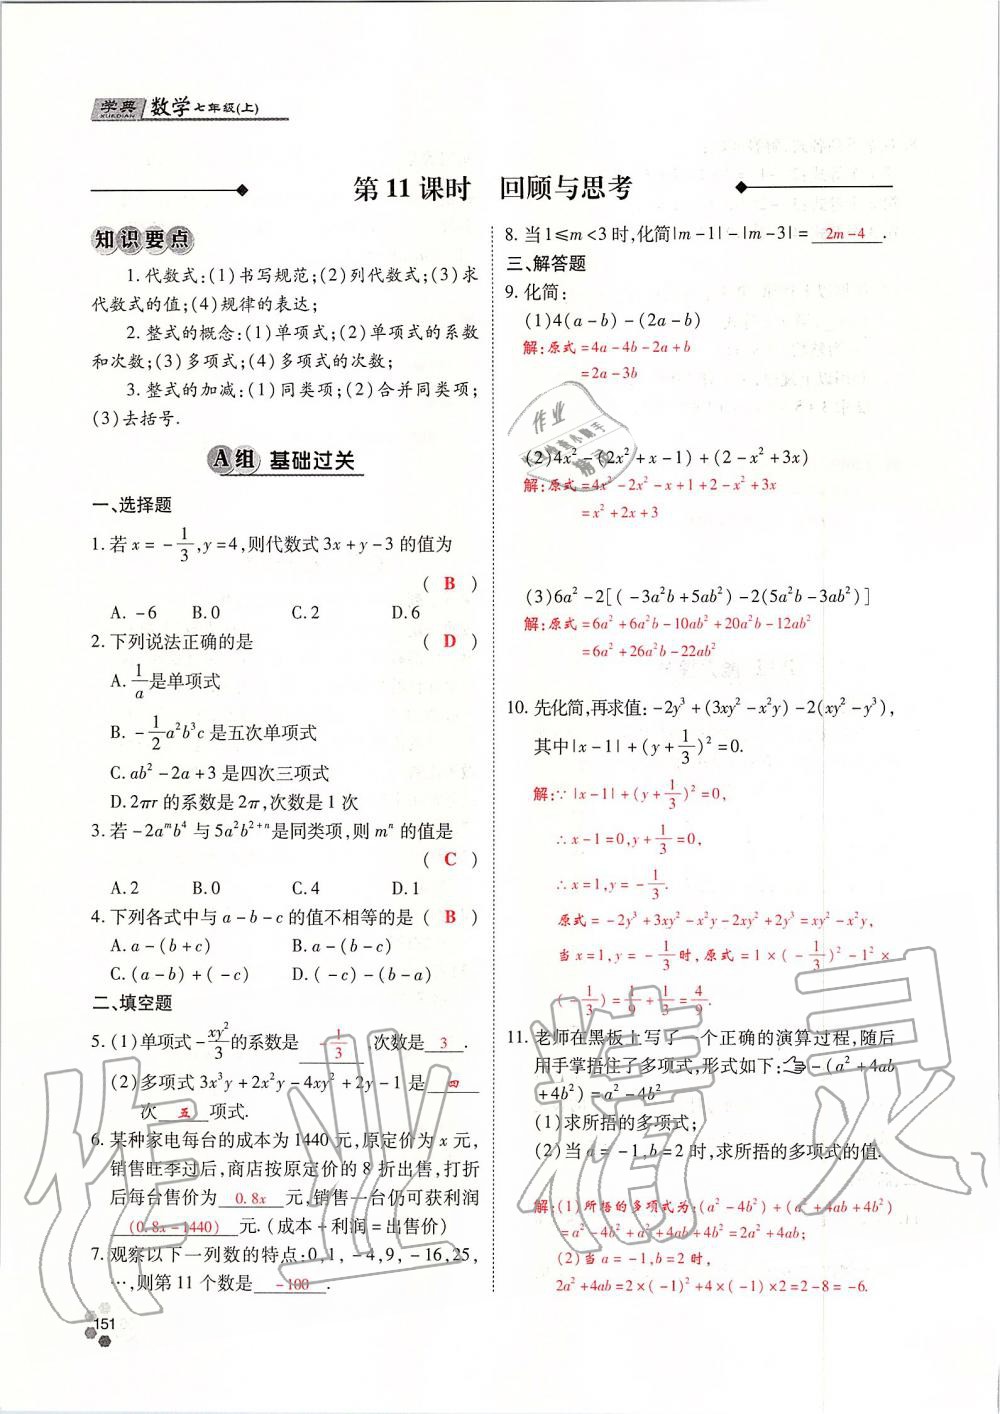 学典 XUEDIAN 数学 七年级(上)
第11课时 回顾与思考
知识要点
1.代数式:(1)书写规范;(2)列代数式;(3)求
代数式的值;(4)规律的表达;
2.整式的概念:(1)单项式;(2)单项式的系数
和次数;(3)多项式;(4)多项式的次数;
3.整式的加减:(1)同类项;(2)合并同类项;
(3)去括号.
A组 基础过关
一、选择题
1.若x=-1/3,y=4,则代数式3x+y-3的值为
( B )
A.-6 B.0 C.2 D.6
2.下列说法正确的是 ( D )
A.1/a是单项式
B.-1/2a²b³c是五次单项式
C.ab²-2a+3是四次三项式
D.2πr的系数是2π,次数是1次
3.若-2aᵐb⁴与5a²b²⁺ⁿ是同类项,则mⁿ的值是
( C )
A.2 B.0 C.4 D.1
4.下列各式中与a-b-c的值不相等的是( B )
A.a-(b+c) B.a-(b-c)
C.(a-b)+(-c) D.(-c)-(b-a)
二、填空题
5.(1)单项式-xy²/3的系数是 -1/3 .次数是 3 .
(2)多项式3x³y+2x²y-4xy²+2y-1是 四
次 五 项式.
6.某种家电每台的成本为1440元,原定价为x元,
销售旺季过后,商店按原定价的8折出售,打折
后每台售价为 0.8x 元,销售一台仍可获利润
(0.8x-1440) 元.(成本+利润=出售价)
7.观察以下一列数的特点:0,1,-4,9,-16,25,
…,则第11个数是 -100 .
151
8.当1≤m<3时,化简|m-1|-|m-3|= 2m-4 .
三、解答题
9.化简:
(1)4(a-b)-(2a-b)
解:原式=4a-4b-2a+b
=2a-3b
(2)4x²-(2x²+x-1)+(2-x²+3x)
解:原式=4x²-2x²-x+1+2-x²+3x
=x²+2x+3
(3)6a²-2[(-3a²b+5ab²)-2(5a²b-3ab²)]
解:原式=6a²+6a²b-10ab²+20a²b-12ab²
=6a²+26a²b-22ab²
10.先化简,再求值:-2y³+(3xy²-x²y)-2(xy²-y³),
其中|x-1|+(y+1/3)²=0.
解:∵|x-1|+(y+1/3)²=0,
∴x-1=0,y+1/3=0,
∴x=1,y=-1/3.
原式=-2y³+3xy²-x²y-2xy²+2y³=xy²-x²y,
当x=1,y=-1/3时,原式=1×(-1/3)²-1²×
(-1/3)=1/9+1/3=4/9.
11.老师在黑板上写了一个正确的演算过程,随后
用手掌捂住了多项式,形式如下:-(a²+4ab
+4b²)=a²-4b²
(1)求所捂的多项式;
(2)当a=-1,b=2时,求所捂的多项式的值.
解:(1)所捂的多项式为:(a²-4b²)+(a²+4ab+4b²)
=a²-4b²+a²+4ab+4b²=2a²+4ab;
(2)当a=-1,b=2时,
2a²+4ab=2×(-1)²+4×(-1)×2=2-8=-6.
作业精灵